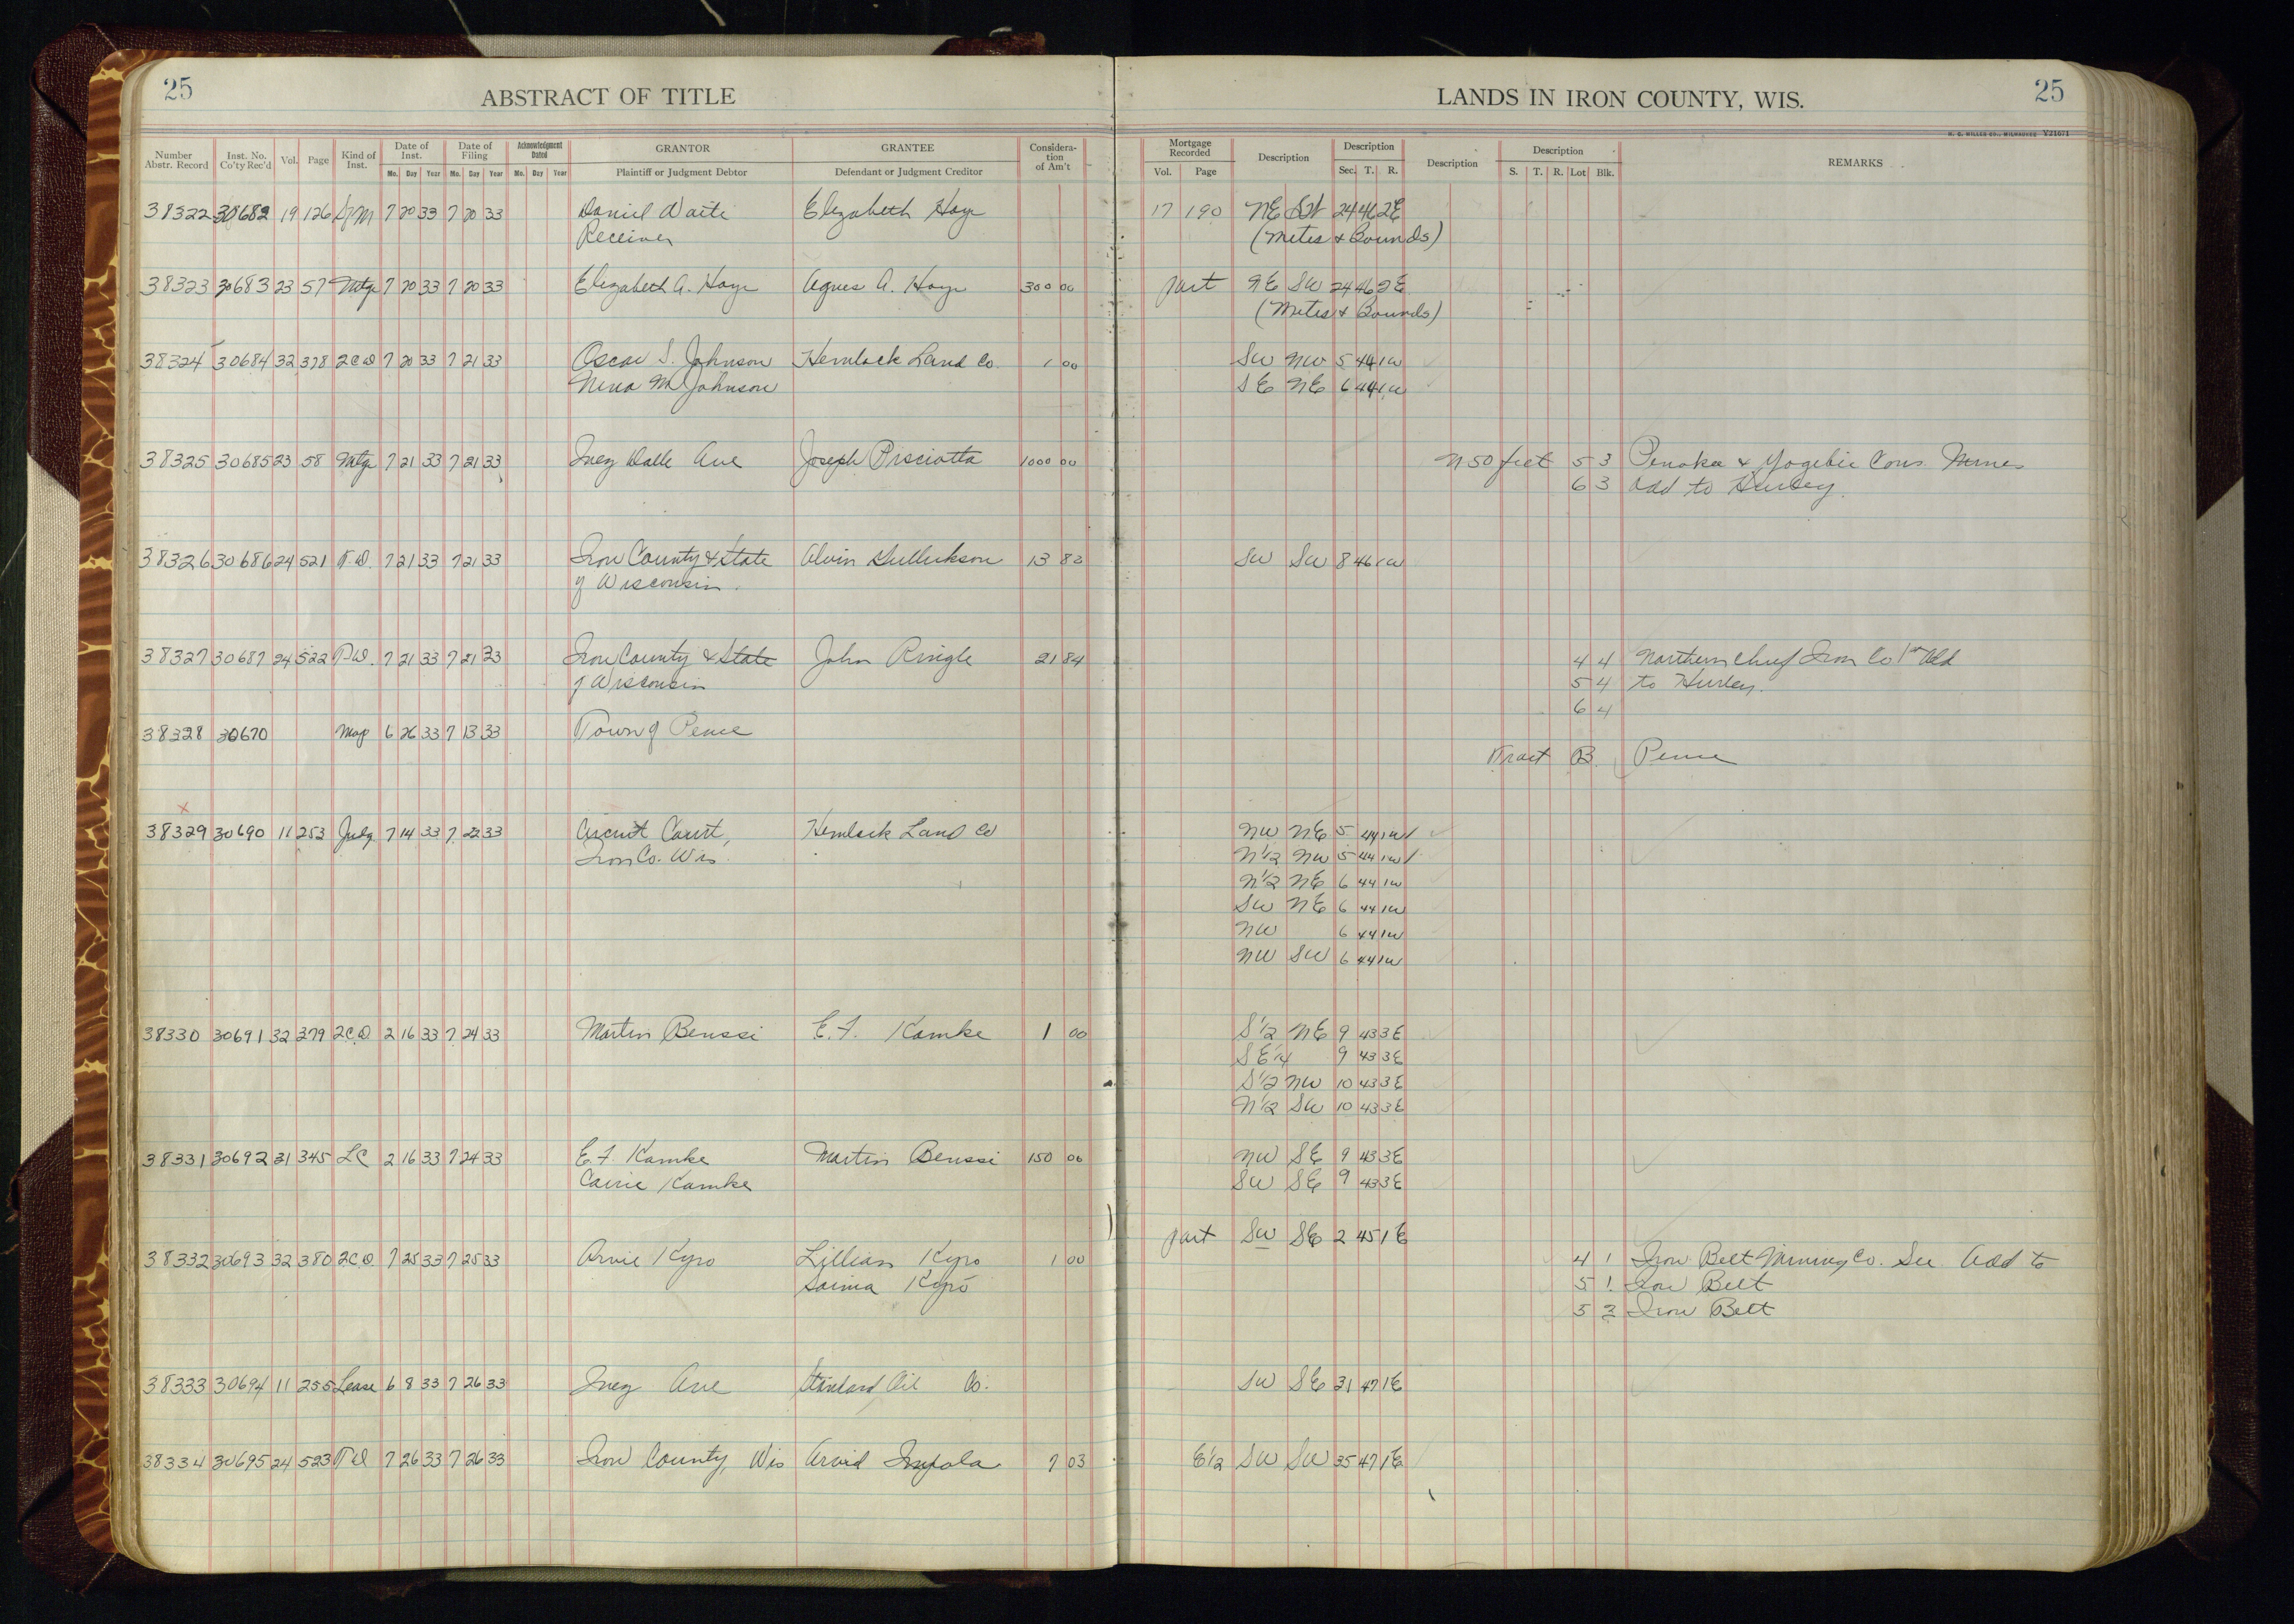 25
ABSTRACT OF TITLE
LANDS IN IRON COUNTY, WIS.
25
H. C. MILLER CO., MILWAUKEE V21671
Number Abstr. Record Inst. No. Co'ty Rec'd Vol. Page Kind of Inst. Date of Inst. Mo. Day Year Date of Filing Mo. Day Year Acknowledgment Dated Mo. Day Year GRANTOR Plaintiff or Judgment Debtor GRANTEE Defendant or Judgment Creditor Considera-tion of Am't Mortgage Recorded Vol. Page Description Description Sec. T. R. Description Description S. T. R. Lot Blk. REMARKS
38322 30682 19 126 7 20 33 7 20 33 Daniel Waite Elizabeth Hoye 17 190 NE SW 24 46 2E
Receiver (Metes & Bounds)
38323 30683 23 57 Mtge 7 20 33 7 20 33 Elizabeth A. Hoye Agnes A. Hoye 300 00 part NE SW 24 46 2E
(Metes & Bounds)
38324 30684 32 378 2CD 7 20 33 7 21 33 Oscar S. Johnson Hemlock Land Co. 1 00 SW NW 5 44 1W
Nena M Johnson SE NE 6 44 1W
38325 30685 23 58 Mtge 7 21 33 7 21 33 Inez Dalle Ave Joseph Prsciotta 1000 00 N 50 feet 5 3 Penokee & Gogebic Cons. Mines
6 3 Add to Hurley.
38326 30686 24 521 T.D. 7 21 33 7 21 33 Iron County & State Alvin Gullickson 13 83 SW SW 8 46 1W
of Wisconsin.
38327 30687 24 522 T.D. 7 21 33 7 21 33 Iron County & State John Ringle 21 84 4 4 Northern Chief Iron Co 1st Add
of Wisconsin 5 4 to Hurley.
6 4
38328 30670 Map 6 26 33 7 13 33 Town of Pence
Tract B. Pence
x
38329 30690 11 253 Judg. 7 14 33 7 22 33 Circuit Court, Hemlock Land Co NW NE 5 44 1W
Iron Co. Wis. N½ NW 5 44 1W
N½ NE 6 44 1W
SW NE 6 44 1W
NW 6 44 1W
NW SW 6 44 1W
38330 30691 32 379 2CD 2 16 33 7 24 33 Martin Benssi E. F. Kamke 1 00 S½ NE 9 43 3E
SE¼ 9 43 3E
S½ NW 10 43 3E
N½ SW 10 43 3E
38331 30692 31 345 LC 2 16 33 7 24 33 E. F. Kamke Martin Benssi 150 00 NW SE 9 43 3E
Carrie Kamke SW SE 9 43 3E
part SW SE 2 45 1E
38332 30693 32 380 2CD 7 25 33 7 25 33 Arvie Kyro Lillian Kyro 1 00 4 1 Iron Belt Mining Co. Sec Add to
Saima Kyro 5 1 Iron Belt
5 2 Iron Belt
38333 30694 11 255 Lease 6 8 33 7 26 33 Inez Ave Standard Oil Co. SW SE 31 47 1E
38334 30695 24 523 TD 7 26 33 7 26 33 Iron County, Wis Arvid Impola 7 03 E½ SW SW 35 47 1E